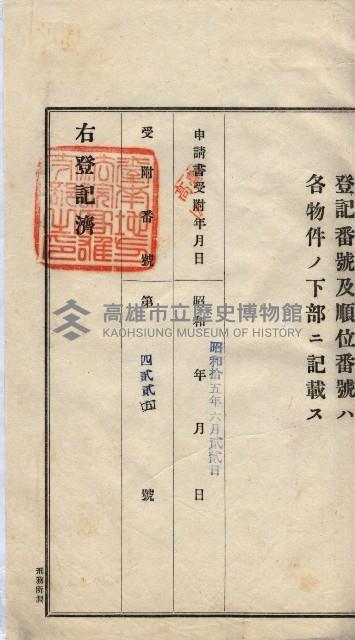 登記番號及順位番號ハ
各物件ノ下部ニ記載ス
申請書受附年月日
昭和 年 月 日
昭和拾五年六月貳貳日
受附番號
第 四貳貳五 號
右登記濟
刑務所製
高雄市立歷史博物館
KAOHSIUNG MUSEUM OF HISTORY